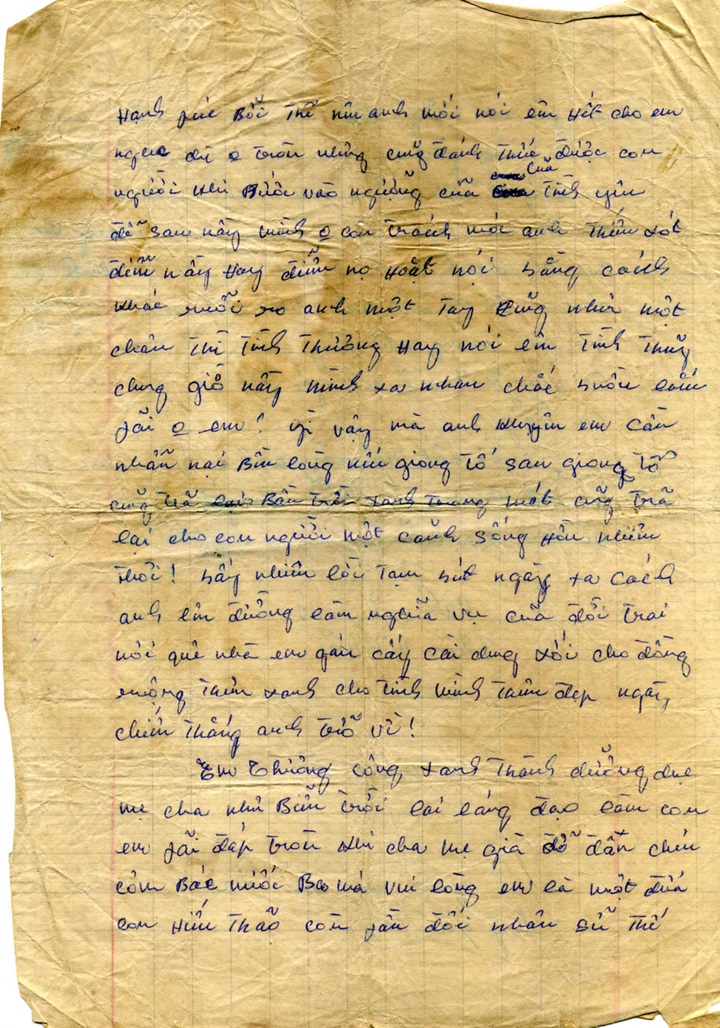 Hạnh phúc Bởi thế nên anh mới nói êm Hết cho em
nghe dù o trọn nhưng cũng đánh thức được con
người khi Bước vào ngưỡng cửa của Tình yêu
để sau nầy mình o còn trách mói anh thiếu xót
điểm nầy Hay điểm nọ Hoặt nói bằng cách
khác rưỡi ro anh một Tay cũng như một
chân thì tình thương Hay nói êm tình thủy
chung giờ nầy mình xa nhau chắc buồn lắm
phải o em! vì vậy mà anh khuyên em cần
nhẫn nại Bền lòng nếu giong tố sau giong tố
cũng trã lại Bầu trời xanh trong mát cũng trã
lại cho con người một cảnh sống Hồn nhiên
thôi! bấy nhiên lời tạm biệt ngày xa cách
anh lên đường làm nghĩa vụ của đời trai
nơi quê nhà em gắn cấy cài dung xới cho đồng
ruộng thêm xanh cho tình mình thêm đẹp ngày
chiến thắng anh trỡ về!
Em Thương công xanh thành dưỡng dục
mẹ cha như Biển trời lai láng đạo làm con
em phải đáp tròn khi cha mẹ già đở đần chén
cơm Bác nước Ba má vui lòng em là một đứa
con Hiếu thảo còn phần đối nhân sử thế